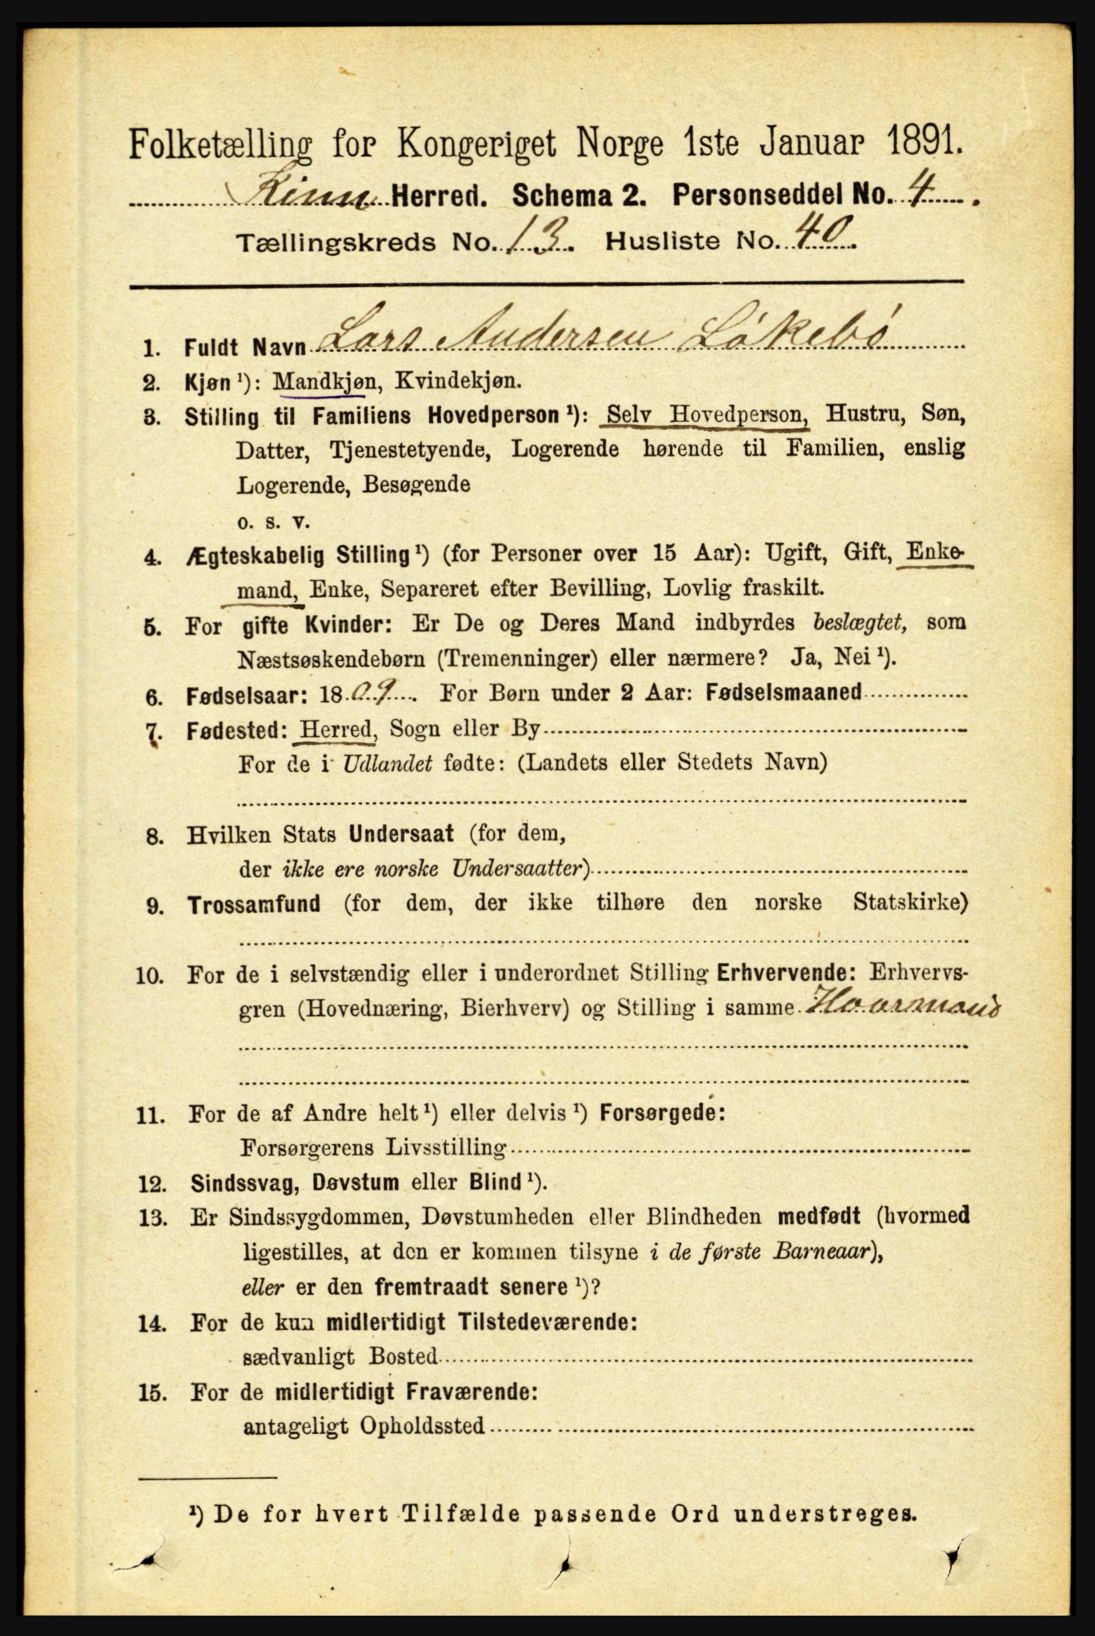 Folketælling for Kongeriget Norge 1ste Januar 1891.
Kinn Herred. Schema 2. Personseddel No. 4.
Tællingskreds No. 13. Husliste No. 40.
1. Fuldt Navn Lars Andersen Løkebø
2. Kjøn ¹): Mandkjøn, Kvindekjøn.
3. Stilling til Familiens Hovedperson ¹): Selv Hovedperson, Hustru, Søn,
Datter, Tjenestetyende, Logerende hørende til Familien, enslig
Logerende, Besøgende
o. s. v.
4. Ægteskabelig Stilling ¹) (for Personer over 15 Aar): Ugift, Gift, Enke-
mand, Enke, Separeret efter Bevilling, Lovlig fraskilt.
5. For gifte Kvinder: Er De og Deres Mand indbyrdes beslægtet, som
Næstsøskendebørn (Tremenninger) eller nærmere? Ja, Nei ¹).
6. Fødselsaar: 1809. For Børn under 2 Aar: Fødselsmaaned
7. Fødested: Herred, Sogn eller By
For de i Udlandet fødte: (Landets eller Stedets Navn)
8. Hvilken Stats Undersaat (for dem,
der ikke ere norske Undersaatter)
9. Trossamfund (for dem, der ikke tilhøre den norske Statskirke)
10. For de i selvstændig eller i underordnet Stilling Erhvervende: Erhvervs-
gren (Hovednæring, Bierhverv) og Stilling i samme Haarmand
11. For de af Andre helt ¹) eller delvis ¹) Forsørgede:
Forsørgerens Livsstilling
12. Sindssvag, Døvstum eller Blind ¹).
13. Er Sindssygdommen, Døvstumheden eller Blindheden medfødt (hvormed
ligestilles, at den er kommen tilsyne i de første Barneaar),
eller er den fremtraadt senere ¹)?
14. For de kun midlertidigt Tilstedeværende:
sædvanligt Bosted
15. For de midlertidigt Fraværende:
antageligt Opholdssted
¹) De for hvert Tilfælde passende Ord understreges.